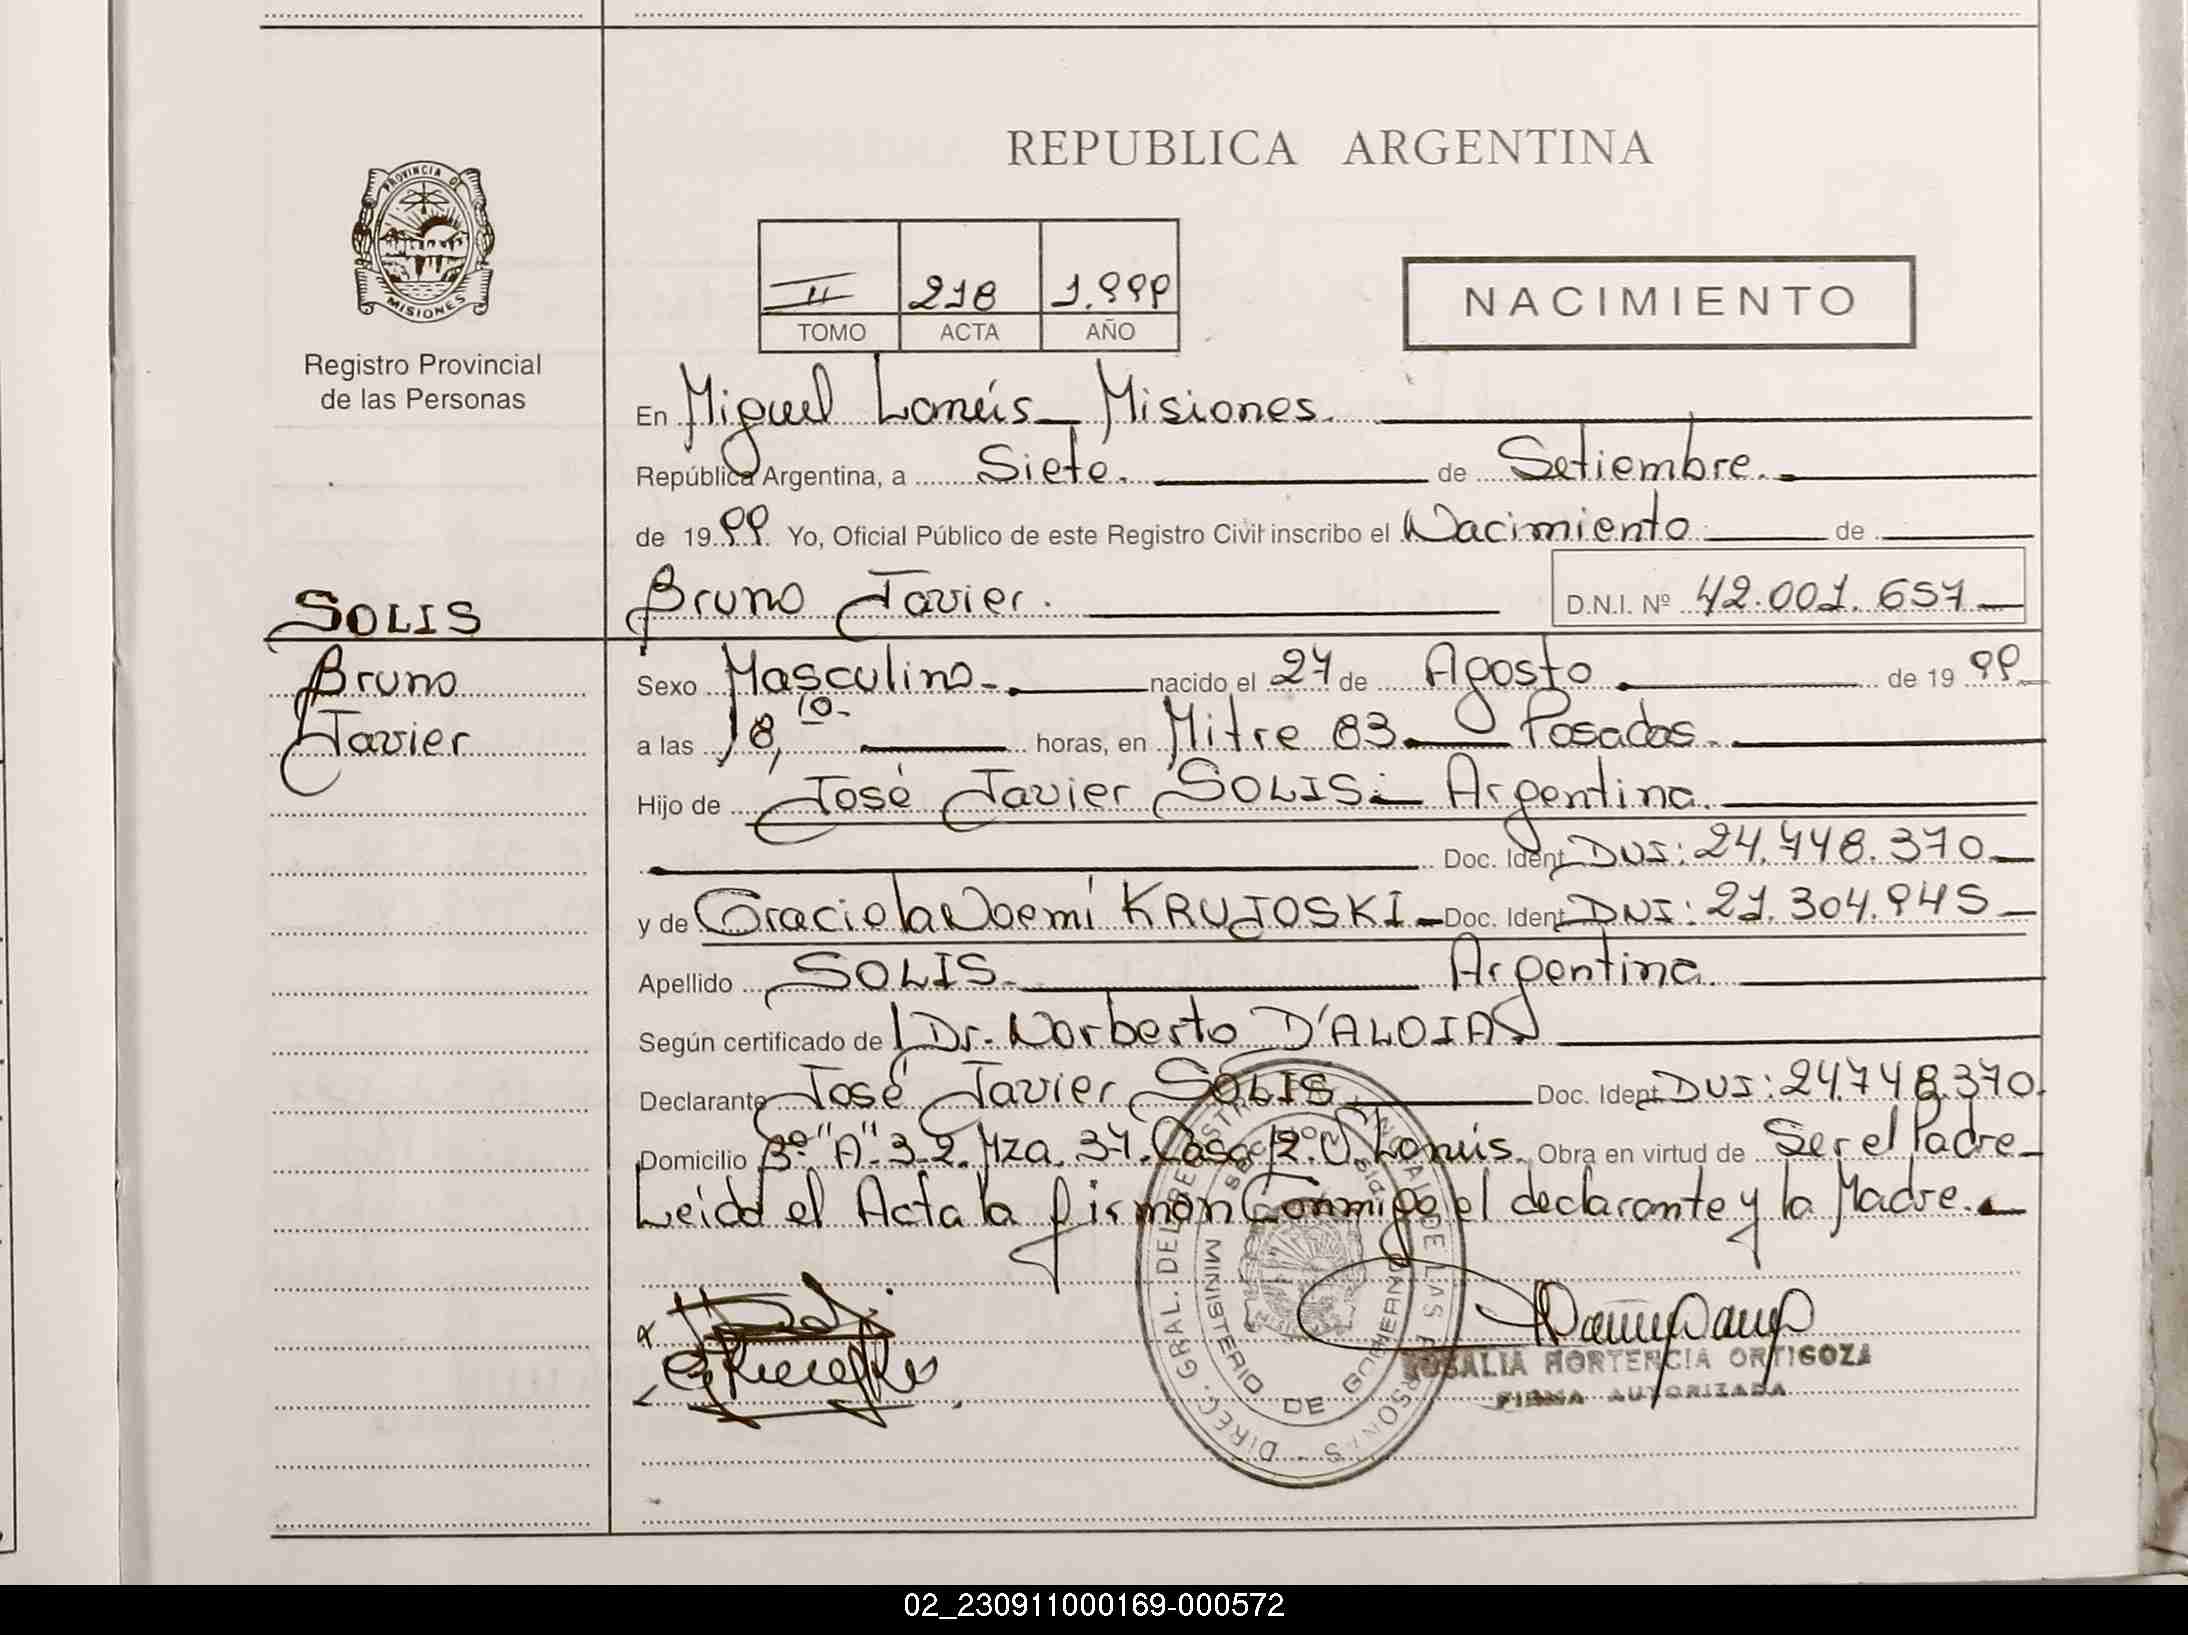 REPUBLICA ARGENTINA
PROVINCIA DE
MISIONES
Registro Provincial
de las Personas
II 218 1.999
TOMO ACTA AÑO
NACIMIENTO
En Miguel Lanús - Misiones.
República Argentina, a Siete. de Setiembre.
de 1999 Yo, Oficial Público de este Registro Civil inscribo el Nacimiento de
SOLIS
Bruno Javier. D.N.I. Nº 42.001.657
Bruno
Javier
Sexo Masculino nacido el 27 de Agosto de 1999
a las 18,10 horas, en Mitre 83 Posadas.
Hijo de José Javier SOLIS. Argentina.
Doc. Ident. DNI: 24.748.370
y de Graciela Noemí KRUJOSKI Doc. Ident. DNI: 21.304.945
Apellido SOLIS. Argentina.
Según certificado de Dr. Norberto D'ALOIA
Declarante José Javier SOLIS Doc. Ident. DNI: 24.748.370
Domicilio Bº "A" 3.2. Mza. 37. Casa 12. Lanús. Obra en virtud de Ser el Padre
Leida el Acta la firman Conmigo el declarante y la Madre.
DIREC. GRAL. DEL REGISTRO PROVINCIAL DE LAS PERSONAS
MINISTERIO DE GOBIERNO
ROSALIA HORTENCIA ORTIGOZA
FIRMA AUTORIZADA
02_230911000169-000572